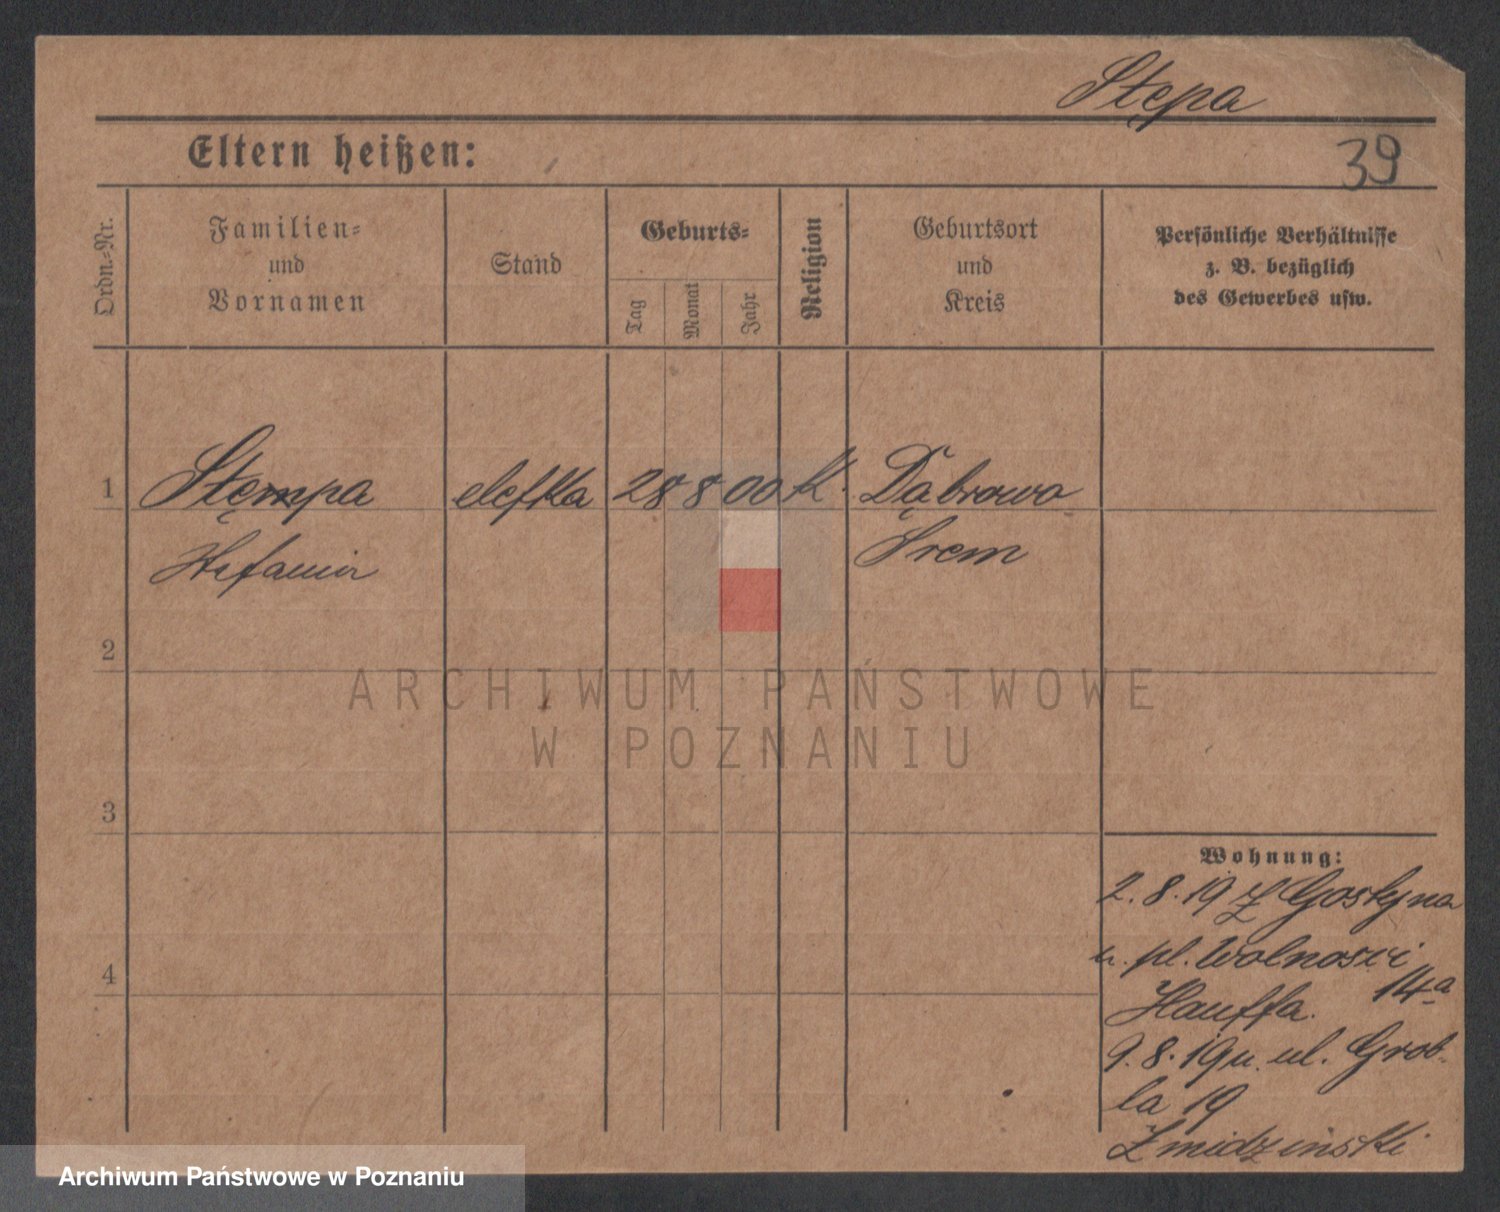 Stępa
Eltern heißen:
39
Ordn.-Nr.
Familien-
und
Vornamen
Stand
Geburts-
Tag
Monat
Jahr
Religion
Geburtsort
und
Kreis
Persönliche Verhältnisse
z. B. bezüglich
des Gewerbes usw.
1 Stęmpa elefka 28 8 00 K. Dąbrowa
Stefania Śrem
2
ARCHIWUM PAŃSTWOWE
W POZNANIU
3
Wohnung:
2. 8. 19 z Gostyna
u. pl. Wolności
14a
Hauffa.
4
9. 8. 19 u. ul. Grob-
la 19
Żmidziński
Archiwum Państwowe w Poznaniu